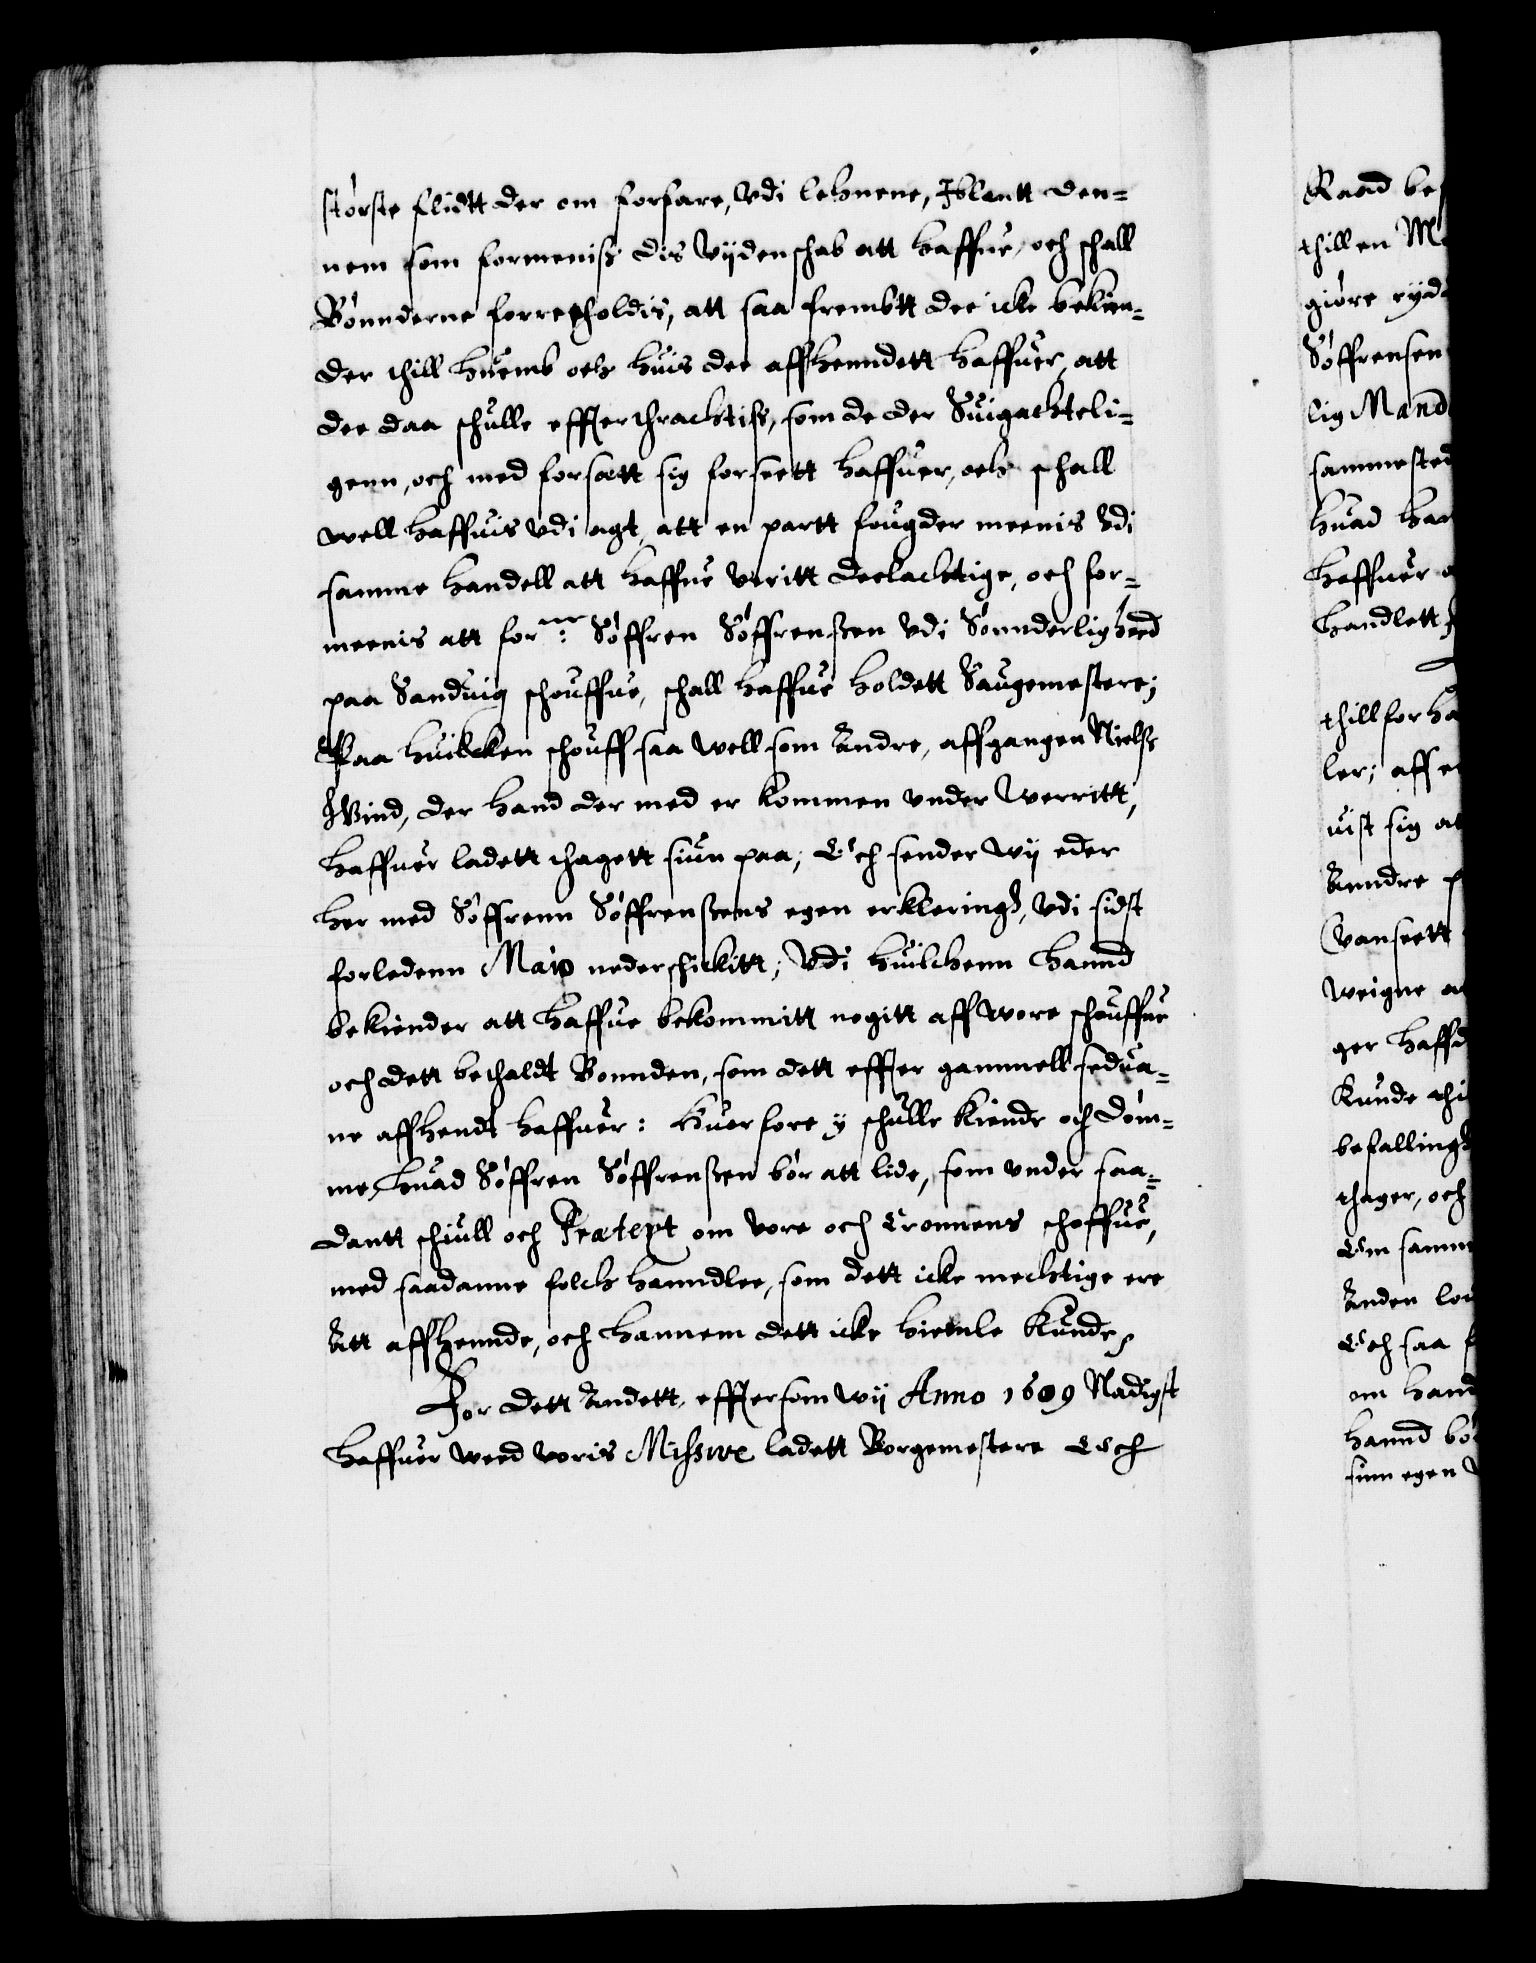 største flidtt der om forfare, vdi lehnene, Iblantt den-
nem som formenis dis vijdenschab att haffue, och schall
Bønnderne forreholdis, att saa frembtt dee icke bekien-
der thill huemb och huis dee affhenndett haffuer, att
dee daa schulle effterthrachtiss, som de der Suigachteli-
genn, och med forsatt sig forseett haffuer, och schall
well haffuis vdi agt, att en partt fougder meenis vdi
samme handell att haffue veritt deelachtige, och for-
meenis att forne: Søffren Søffrenssen vdi Sønnderligheed
paa Sanduig schouffue, schall haffue holdett Saugemestere;
Paa huilcken schouff saa well som Andre, affgangen Nielss
Wind, der hand der med er kommen vnder Werritt,
haffuer ladett thagett siun paa; Och sender wij eder
her med Søffrenn Søffrenssens egen erklering, vdi sidst
forledenn Maio nederschickitt; vdi huilchenn hannd
bekiender att haffue bekommitt nogitt aff wore schouffue
och dett bethaldt Bonnden, som dett effter gammell sedua-
ne affhendt haffuer: Huerfore y schulle kiende och døm-
me, huad Søffren Søffrenssen bør att lide, som vnder saa-
dantt schiull och Prætext om vore och Cronnens schoffue,
med saadanne folch hanndlee, som dett icke mechtige ere
Att affhennde, och hannem dett icke hiemle kunde,
For dett Andett, effttersom wij Anno 1609 Nadigst
haffuer weed voris Missive ladett Borgemestere Och
Raad be
thill en M
giøre ryd
Søffrensen
lig Mand
sammested
huad han
haffuer
handlett
thill forha
ler; aff
uist sig at
Anndre
vanseett
weigne
ger haff
Kunde thi
befalling
thager, och
Om samme
Anden
Och saa
om hand
hannd bø
sinn egen